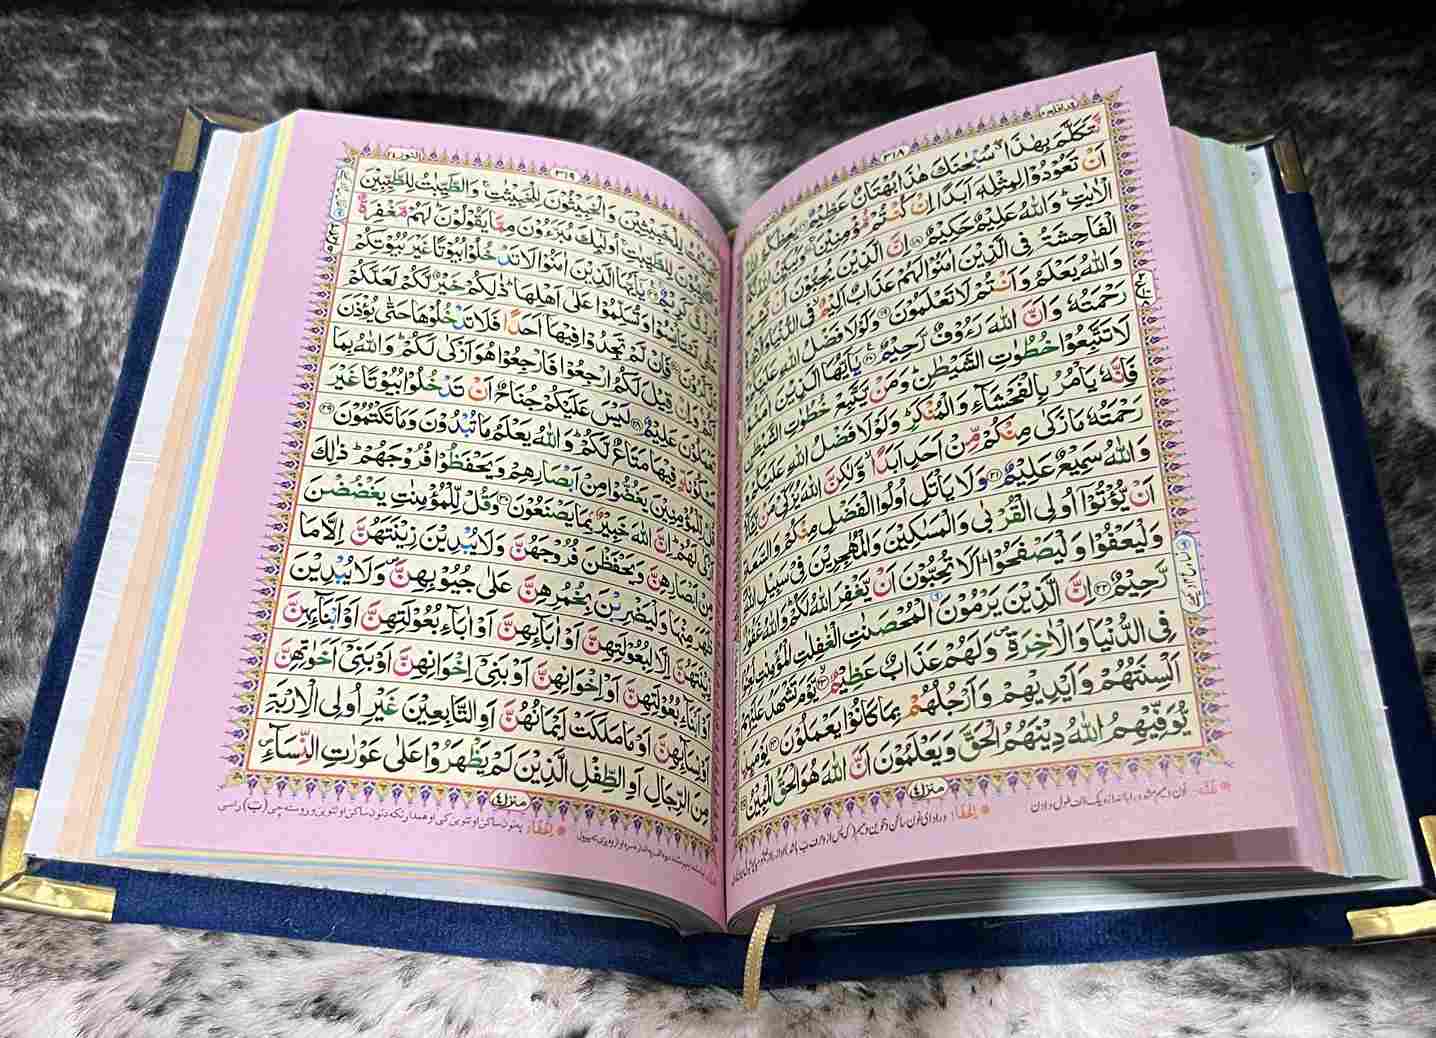 قد افلح ١٨
٣١٨
نَّتَكَلَّمَ بِهٰذَا ۖ سُبْحٰنَكَ هٰذَا بُهْتَانٌ عَظِيْمٌ ﴿١٦﴾ يَعِظُكُمُ
اَنْ تَعُوْدُوْا لِمِثْلِهٖٓ اَبَدًا اِنْ كُنْتُمْ مُّؤْمِنِيْنَ ﴿١٧﴾ وَيُبَيِّنُ
الْاٰيٰتِ ؕ وَاللّٰهُ عَلِيْمٌ حَكِيْمٌ ﴿١٨﴾ اِنَّ الَّذِيْنَ يُحِبُّوْنَ اَنْ تَشِيْعَ
الْفَاحِشَةُ فِى الَّذِيْنَ اٰمَنُوْا لَهُمْ عَذَابٌ اَلِيْمٌ ۙ فِى الدُّنْيَا وَالْاٰخِرَةِ
وَاللّٰهُ يَعْلَمُ وَاَنْتُمْ لَا تَعْلَمُوْنَ ﴿١٩﴾ وَلَوْلَا فَضْلُ اللّٰهِ عَلَيْكُمْ
رَحْمَتُهٗ وَاَنَّ اللّٰهَ رَءُوْفٌ رَّحِيْمٌ ﴿٢٠﴾ يٰۤاَيُّهَا الَّذِيْنَ اٰمَنُوْا
لَا تَتَّبِعُوْا خُطُوٰتِ الشَّيْطٰنِ ؕ وَمَنْ يَّتَّبِعْ خُطُوٰتِ الشَّيْطٰنِ
فَاِنَّهٗ يَاْمُرُ بِالْفَحْشَآءِ وَالْمُنْكَرِ ؕ وَلَوْلَا فَضْلُ اللّٰهِ عَلَيْكُمْ
رَحْمَتُهٗ مَا زَكٰى مِنْكُمْ مِّنْ اَحَدٍ اَبَدًا ۙ وَّلٰكِنَّ اللّٰهَ يُزَكِّىْ مَنْ يَّشَآءُ
وَاللّٰهُ سَمِيْعٌ عَلِيْمٌ ﴿٢١﴾ وَلَا يَاْتَلِ اُولُوا الْفَضْلِ مِنْكُمْ وَالسَّعَةِ
اَنْ يُّؤْتُوْۤا اُولِى الْقُرْبٰى وَالْمَسٰكِيْنَ وَالْمُهٰجِرِيْنَ فِىْ سَبِيْلِ اللّٰهِ
وَلْيَعْفُوْا وَلْيَصْفَحُوْا ؕ اَلَا تُحِبُّوْنَ اَنْ يَّغْفِرَ اللّٰهُ لَكُمْ ؕ وَاللّٰهُ غَفُوْرٌ
رَّحِيْمٌ ﴿٢٢﴾ اِنَّ الَّذِيْنَ يَرْمُوْنَ الْمُحْصَنٰتِ الْغٰفِلٰتِ الْمُؤْمِنٰتِ لُعِنُوْا
فِى الدُّنْيَا وَالْاٰخِرَةِ ۪ وَلَهُمْ عَذَابٌ عَظِيْمٌ ﴿٢٣﴾ يَّوْمَ تَشْهَدُ عَلَيْهِمْ
اَلْسِنَتُهُمْ وَاَيْدِيْهِمْ وَاَرْجُلُهُمْ بِمَا كَانُوْا يَعْمَلُوْنَ ﴿٢٤﴾ يَوْمَئِذٍ
يُّوَفِّيْهِمُ اللّٰهُ دِيْنَهُمُ الْحَقَّ وَيَعْلَمُوْنَ اَنَّ اللّٰهَ هُوَ الْحَقُّ الْمُبِيْنُ ﴿٢٥﴾
منزل ٤
٣١٩
النور ٢٤
لِلْخَبِيْثِيْنَ وَالْخَبِيْثُوْنَ لِلْخَبِيْثٰتِ ۚ وَالطَّيِّبٰتُ لِلطَّيِّبِيْنَ
لِلطَّيِّبٰتِ ۚ اُولٰٓئِكَ مُبَرَّءُوْنَ مِمَّا يَقُوْلُوْنَ ؕ لَهُمْ مَّغْفِرَةٌ
كَرِيْمٌ ﴿٢٦﴾ يٰۤاَيُّهَا الَّذِيْنَ اٰمَنُوْا لَا تَدْخُلُوْا بُيُوْتًا غَيْرَ بُيُوْتِكُمْ
حَتّٰى تَسْتَاْنِسُوْا وَتُسَلِّمُوْا عَلٰٓى اَهْلِهَا ؕ ذٰلِكُمْ خَيْرٌ لَّكُمْ لَعَلَّكُمْ
فَاِنْ لَّمْ تَجِدُوْا فِيْهَاۤ اَحَدًا فَلَا تَدْخُلُوْهَا حَتّٰى يُؤْذَنَ
لَكُمْ ۚ وَاِنْ قِيْلَ لَكُمُ ارْجِعُوْا فَارْجِعُوْا هُوَ اَزْكٰى لَكُمْ ؕ وَاللّٰهُ بِمَا
تَعْمَلُوْنَ عَلِيْمٌ ﴿٢٨﴾ لَيْسَ عَلَيْكُمْ جُنَاحٌ اَنْ تَدْخُلُوْا بُيُوْتًا غَيْرَ
مَسْكُوْنَةٍ فِيْهَا مَتَاعٌ لَّكُمْ ؕ وَاللّٰهُ يَعْلَمُ مَا تُبْدُوْنَ وَمَا تَكْتُمُوْنَ ﴿٢٩﴾
قُلْ لِّلْمُؤْمِنِيْنَ يَغُضُّوْا مِنْ اَبْصَارِهِمْ وَيَحْفَظُوْا فُرُوْجَهُمْ ؕ ذٰلِكَ
اَزْكٰى لَهُمْ ؕ اِنَّ اللّٰهَ خَبِيْرٌۢ بِمَا يَصْنَعُوْنَ ﴿٣٠﴾ وَقُلْ لِّلْمُؤْمِنٰتِ يَغْضُضْنَ
مِنْ اَبْصَارِهِنَّ وَيَحْفَظْنَ فُرُوْجَهُنَّ وَلَا يُبْدِيْنَ زِيْنَتَهُنَّ اِلَّا مَا
ظَهَرَ مِنْهَا وَلْيَضْرِبْنَ بِخُمُرِهِنَّ عَلٰى جُيُوْبِهِنَّ ۪ وَلَا يُبْدِيْنَ
زِيْنَتَهُنَّ اِلَّا لِبُعُوْلَتِهِنَّ اَوْ اٰبَآئِهِنَّ اَوْ اٰبَآءِ بُعُوْلَتِهِنَّ اَوْ اَبْنَآئِهِنَّ
اَوْ اَبْنَآءِ بُعُوْلَتِهِنَّ اَوْ اِخْوَانِهِنَّ اَوْ بَنِىْۤ اِخْوَانِهِنَّ اَوْ بَنِىْۤ اَخَوٰتِهِنَّ
اَوْ نِسَآئِهِنَّ اَوْ مَا مَلَكَتْ اَيْمَانُهُنَّ اَوِ التَّابِعِيْنَ غَيْرِ اُولِى الْاِرْبَةِ
مِنَ الرِّجَالِ اَوِ الطِّفْلِ الَّذِيْنَ لَمْ يَظْهَرُوْا عَلٰى عَوْرٰتِ النِّسَآءِ
منزل ٤